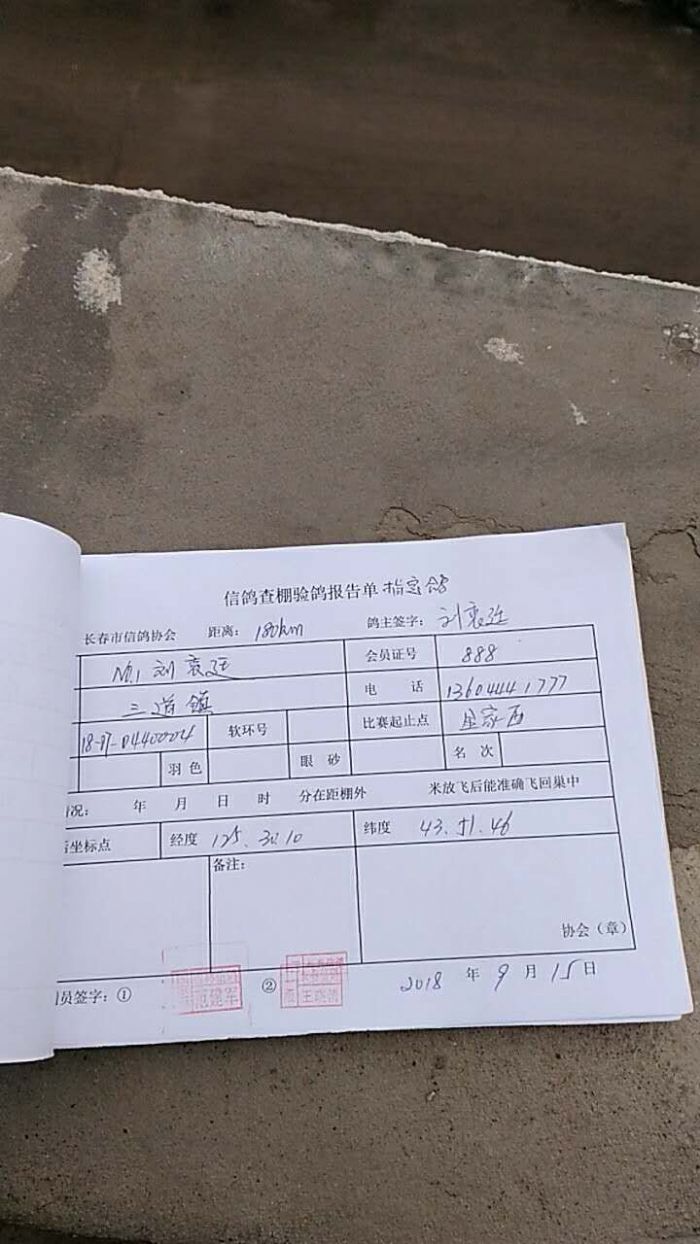 信鸽查棚验鸽报告单 指定鸽
长春市信鸽协会 距离: 180km 鸽主签字:
No.1 刘 会员证号 888
三道镇 电 话 13604441777
软环号 比赛起止点
羽色 眼砂 名次
情况: 年 月 日 时 分在距棚外 米放飞后能准确飞回巢中
坐标点 经度 125.30.10 纬度 43.51.46
备注:
协会(章)
员签字:① 范建军 ②
2018 年 9 月 15 日